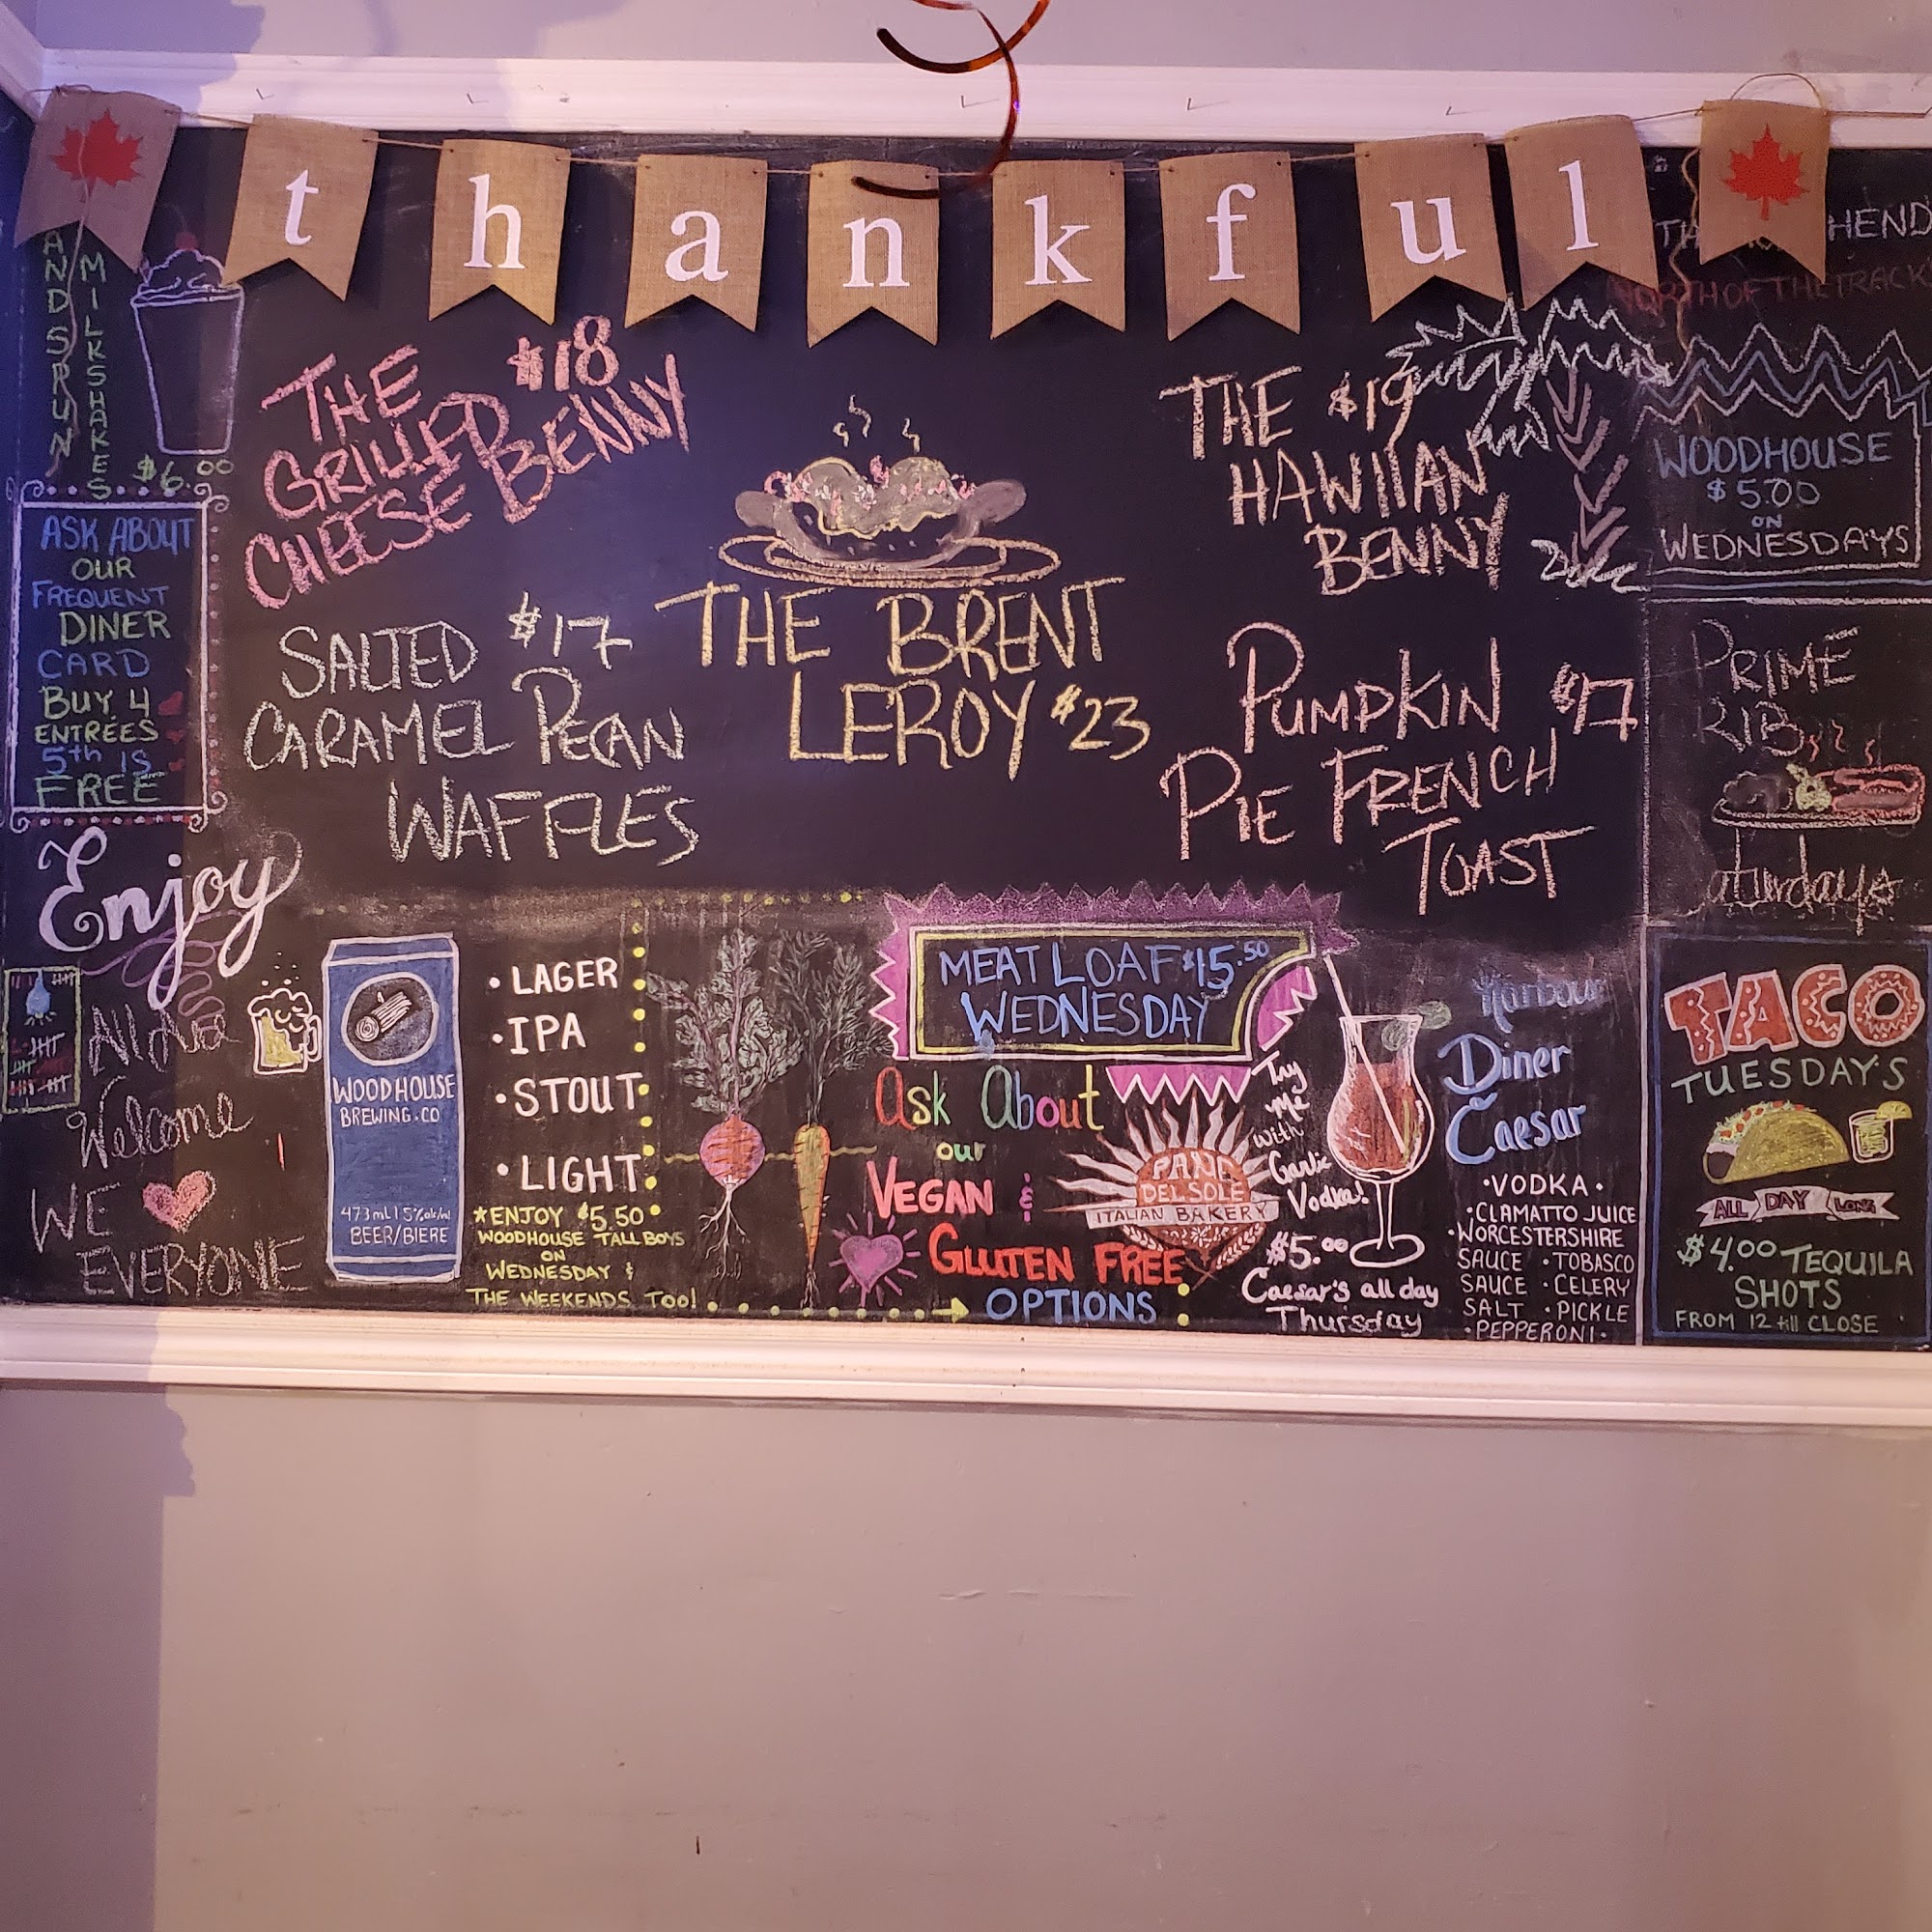 thankful
HANDSPUN
MILKSHAKES
$6.00
ASK ABOUT
OUR
FREQUENT
DINER
CARD
BUY 4
ENTRÉES
5th IS
FREE
Enjoy
All Are
Welcome
WE
EVERYONE
THE $18
GRILLED
CHEESE BENNY
SALTED $17
CARAMEL PECAN
WAFFLES
THE BRENT
LEROY $23
THE $19
HAWIIAN
BENNY
PUMPKIN $17
PIE FRENCH
TOAST
HEND
NORTH OF THE TRACKS
WOODHOUSE
$5.00
ON
WEDNESDAYS
PRIME
RIB
aturdays
WOODHOUSE
BREWING.CO
473ml 5%alc/vol
BEER/BIERE
• LAGER
• IPA
• STOUT
• LIGHT
*ENJOY $5.50
WOODHOUSE TALL BOYS
ON
WEDNESDAY &
THE WEEKENDS TOO!
MEATLOAF $15.50
WEDNESDAY
Ask About
our
VEGAN &
GLUTEN FREE
OPTIONS
PANE
DEL SOLE
ITALIAN BAKERY
Try
Me
with
Garlic
Vodka!
$5.00
Caesar's all day
Thursday
Harbour
Diner
Caesar
• VODKA •
• CLAMATTO JUICE
• WORCESTERSHIRE
SAUCE • TOBASCO
SAUCE • CELERY
SALT • PICKLE
• PEPPERONI •
TACO
TUESDAY'S
ALL DAY LONG
$4.00 TEQUILA
SHOTS
FROM 12 till CLOSE